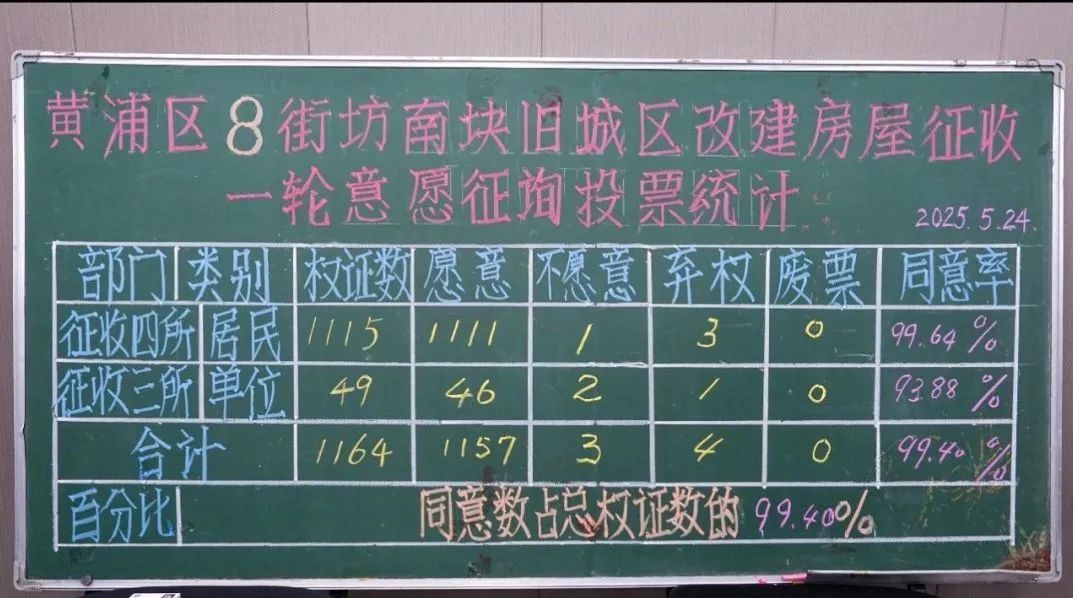 黄浦区8街坊南块旧城区改建房屋征收
一轮意愿征询投票统计
2025.5.24.
部门 类别 权证数 愿意 不愿意 弃权 废票 同意率
征收四所 居民 1115 1111 1 3 0 99.64%
征收三所 单位 49 46 2 1 0 93.88%
合计 1164 1157 3 4 0 99.40%
百分比 同意数占总权证数的 99.40%